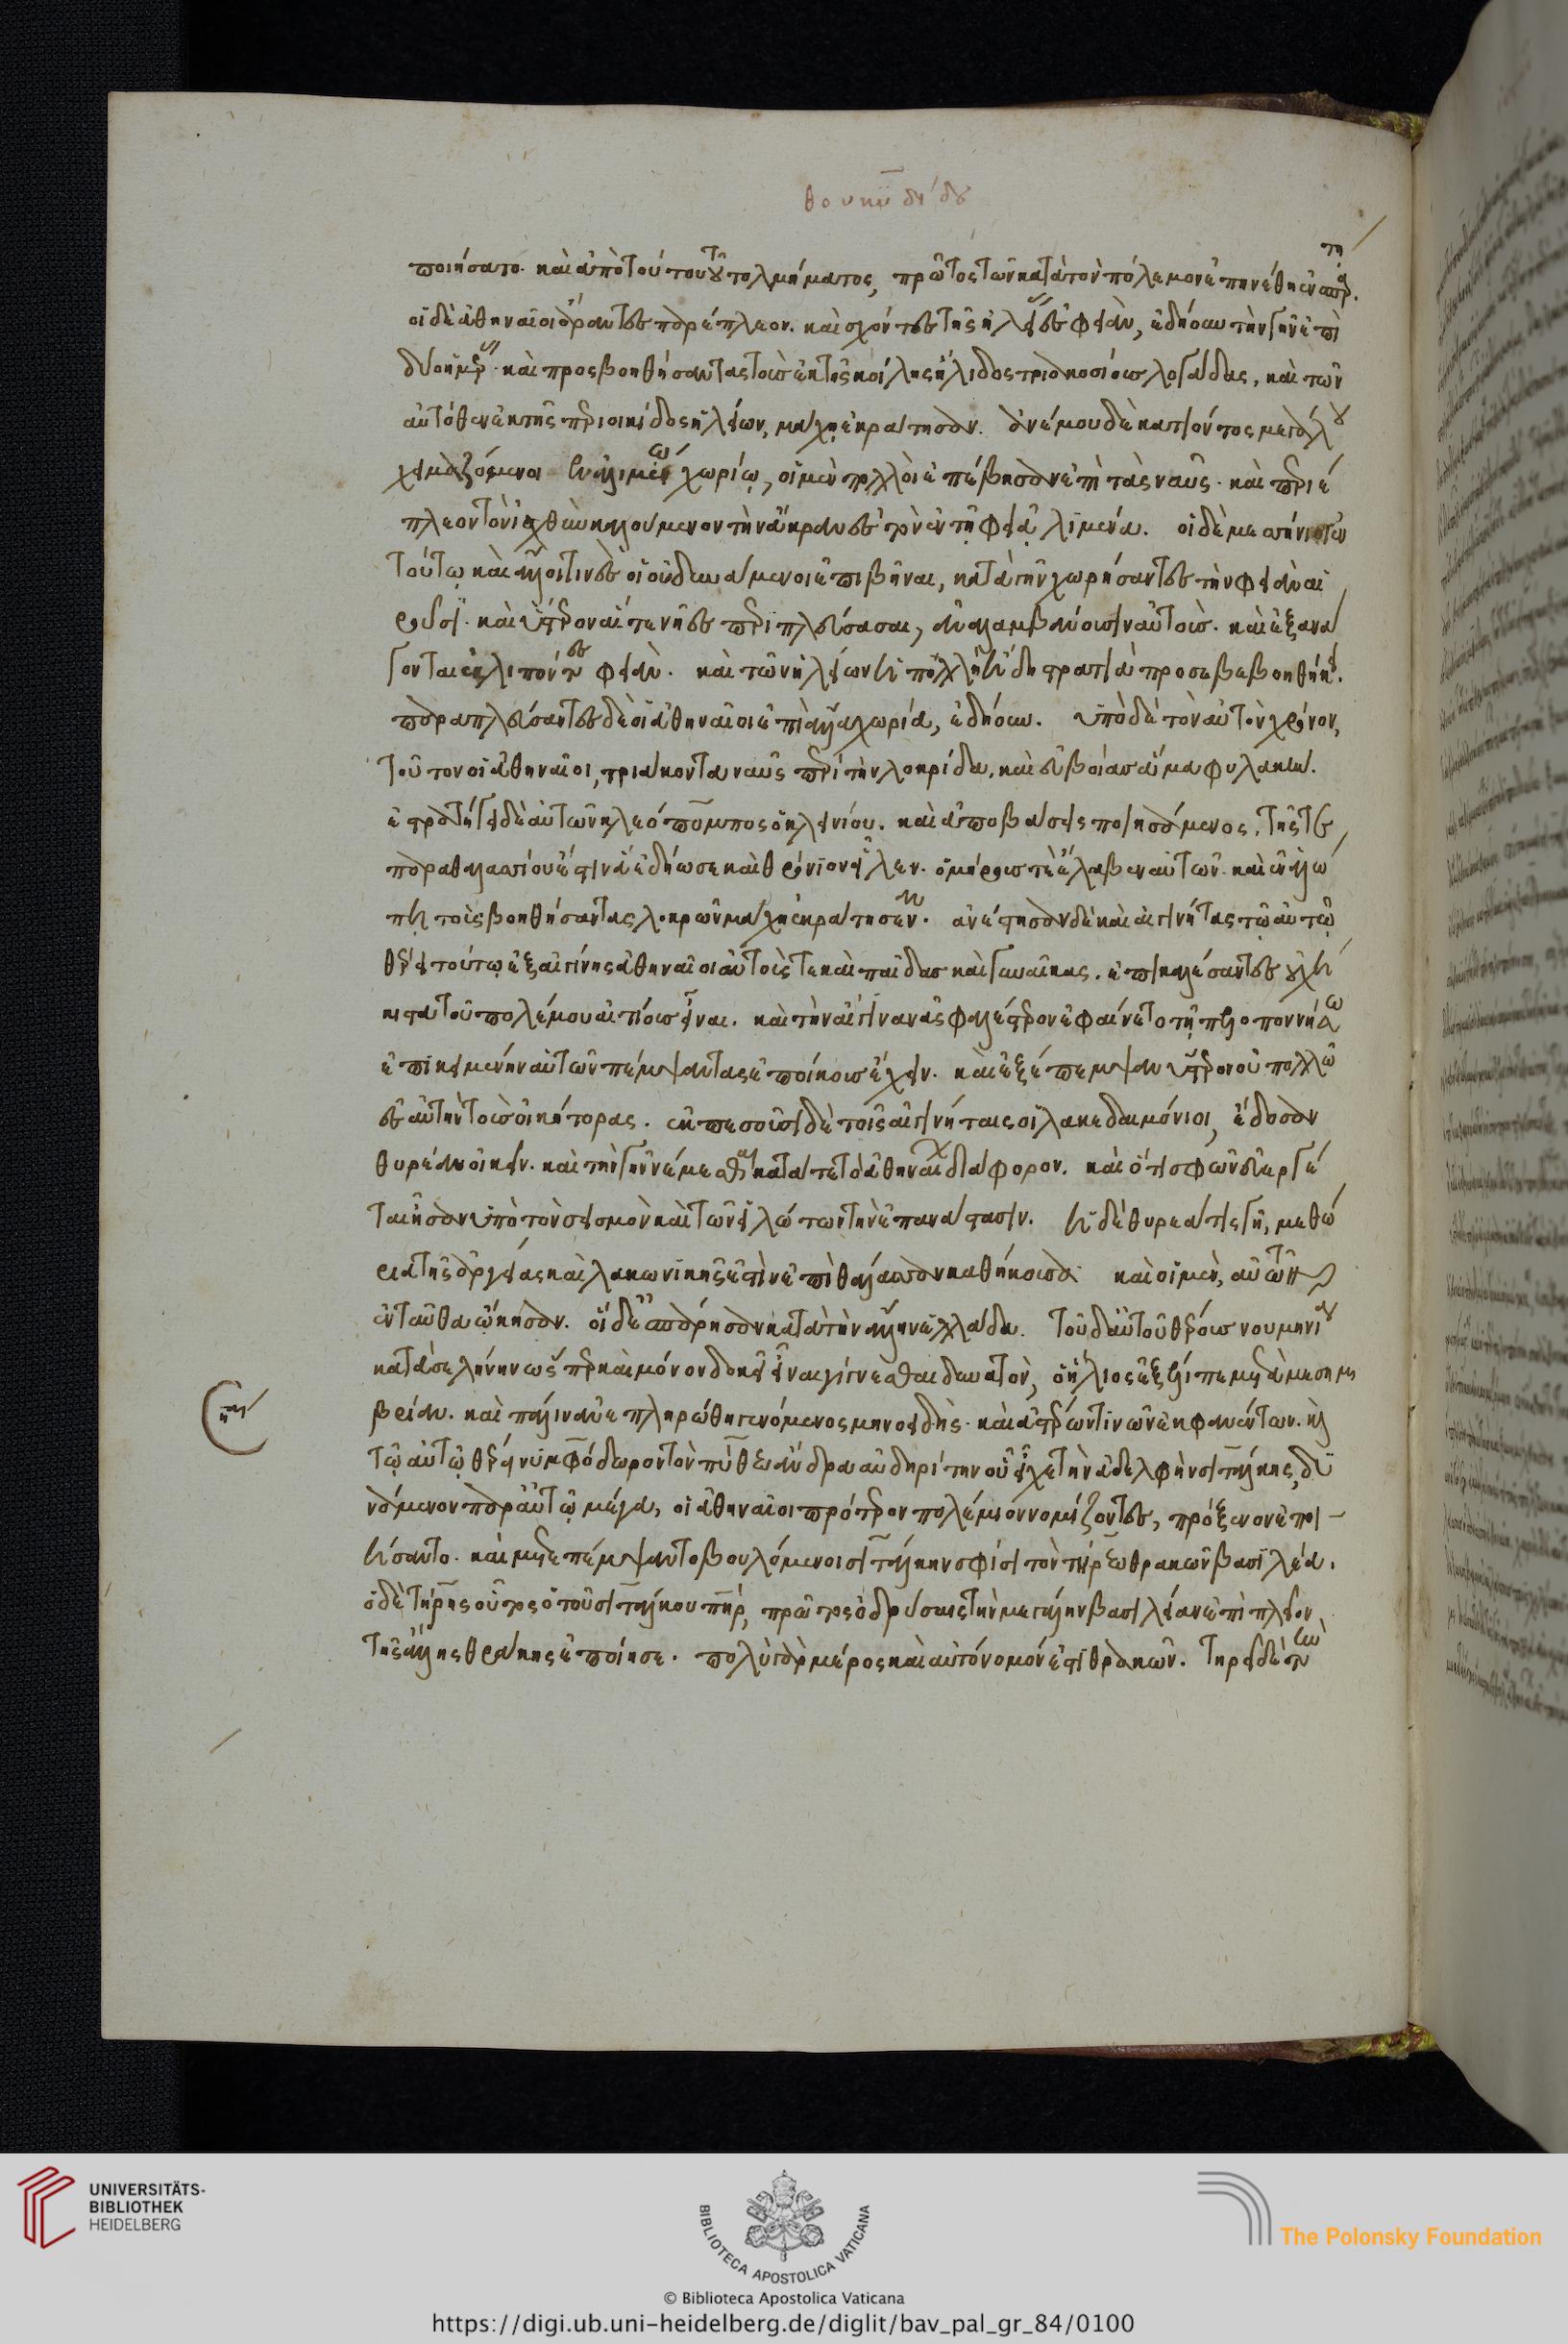 θουκυδίδου
ποιήσατο. καὶ ἀπὸ τούτου τοῦ τολμήματος, πρῶτος τῶν κατὰ τὸν πόλεμον ἐπηνέθη ἐν σπάρτη.
οἱ δὲ ἀθηναῖοι ἄραντες παρέπλεον. καὶ σχόντες τῆς ἠλείας ἐς φειὰν, ἐδήουν τὴν γῆν ἐπὶ
δύο ἡμέρας. καὶ προσβοηθήσαντας τοὺς ἐκ τῆς κοίλης ἤλιδος τριακοσίους λογάδας, καὶ τῶν
αὐτόθεν ἐκ τῆς περιοικίδος ἠλείων, μάχη ἐκράτησαν. ἀνέμου δὲ κατιόντος μεγάλου
χειμαζόμενοι ἐν ἀλιμένω χωρίω, οἱ μὲν πολλοὶ ἐπέβησαν ἐπὶ τὰς ναῦς. καὶ περιέ
πλεον τὸν ἰχθῦν καλούμενον τὴν ἄκραν ἐς τὸν ἐν τῇ φειᾷ λιμένα. οἱ δὲ μεσσήνιοι ἐν
τούτω καὶ ἄλλοι τινὲς οἱ οὐ δυνάμενοι ἐπιβῆναι, κατὰ γῆν χωρήσαντες τὴν φειὰν αἱ
ροῦσι. καὶ ὕστερον αἵ τε νῆες περιπλεύσασαι, ἀναλαμβάνουσιν αὐτούς. καὶ ἐξανά
γονται ἐκλιπόντες φειάν. καὶ τῶν ἠλείων ἡ πολλὴ ἤδη στρατιὰ προσεβεβοηθήκει.
παραπλεύσαντες δὲ οἱ ἀθηναῖοι ἐπὶ ἄλλα χωρία, ἐδήουν. ὑπὸ δὲ τὸν αὐτὸν χρόνον,
τοῦτον οἱ ἀθηναῖοι, τριάκοντα ναῦς περὶ τὴν λοκρίδα, καὶ εὐβοίας ἅμα φυλακήν.
ἐστρατήγει δὲ αὐτῶν κλεόπομπος ὁ κλεινίου. καὶ ἀποβάσεις ποιησάμενος, τῆς τε
παραθαλασσίου ἔστιν ἃ ἐδήωσε καὶ θρόνιον εἷλεν. ὁμήρους τὲ ἔλαβεν αὐτῶν. καὶ ἐν ἀλό
πῃ τοὺς βοηθήσαντας λοκρῶν μάχη ἐκράτησεν. ἀνέστησαν δὲ καὶ αἰγινήτας τῷ αὐτῷ
θέρει τούτω ἐξ αἰγίνης ἀθηναῖοι αὐτούς τε καὶ παῖδας καὶ γυναῖκας. ἐπικαλέσαντες οὐχ ἥ
κιστα τοῦ πολέμου αἰτίους εἶναι. καὶ τὴν αἴγιναν ἀσφαλέστερον ἐφαίνετο τῇ πελοποννήσω
ἐπικειμένην αὐτῶν πέμψαντας ἐποίκους ἔχειν. καὶ ἐξέπεμψαν ὕστερον οὐ πολλῷ
ἐς αὐτὴν τοὺς οἰκήτορας. ἐκπεσοῦσι δὲ τοῖς αἰγινήταις οἱ λακεδαιμόνιοι, ἔδοσαν
θυρέαν οἰκεῖν. καὶ τὴν γῆν νέμεσθαι κατά τε τὸ ἀθηναίων διάφορον. καὶ ὅτι σφῶν εὐεργέ
ται ἦσαν ὑπὸ τὸν σεισμὸν καὶ τῶν εἱλώτων τὴν ἐπανάστασιν. ἡ δὲ θυρεάτις γῆ, μεθο
ρία τῆς ἀργείας καὶ λακωνικῆς ἐστὶν ἐπὶ θάλασσαν καθήκουσα. καὶ οἱ μὲν, αὐτῶν
ἐνταῦθα ᾤκησαν. οἱ δὲ ἐσπάρησαν κατὰ τὴν ἄλλην ἑλλάδα. τοῦ δ' αὐτοῦ θέρους νουμηνία
κατὰ σελήνην ὥσπερ καὶ μόνον δοκεῖ εἶναι γίγνεσθαι δυνατὸν, ὁ ἥλιος ἐξέλιπε μετὰ μεσημ
βρίαν. καὶ πάλιν ἀνεπληρώθη γενόμενος μηνοειδὴς. καὶ ἀστέρων τινῶν ἐκφανέντων. καὶ
τῷ αὐτῷ θέρει νυμφόδωρον τὸν πύθεω ἄνδρα αὐδηρίτην οὗ εἶχε τὴν ἀδελφὴν σιτάλκης, δυ
νάμενον παρ' αὐτῷ μέγα, οἱ ἀθηναῖοι πρότερον πολέμιον νομίζοντες, πρόξενον ἐποι
ήσαντο. καὶ μετεπέμψαντο βουλόμενοι σιτάλκην σφίσι τὸν τήρεω θρακῶν βασιλέα.
ὁ δὲ τήρης οὗτος ὁ τοῦ σιτάλκου πατὴρ, πρῶτος ὀδρύσαις τὴν μεγάλην βασιλείαν ἐπὶ πλεῖον
τῆς ἄλλης θράκης ἐποίησε. πολὺ γὰρ μέρος καὶ αὐτόνομόν ἐστι θρακῶν. τηρεῖ δὲ τῶ
UNIVERSITÄTS-
BIBLIOTHEK
HEIDELBERG
BIBLIOTECA APOSTOLICA VATICANA
The Polonsky Foundation
© Biblioteca Apostolica Vaticana
https://digi.ub.uni-heidelberg.de/diglit/bav_pal_gr_84/0100